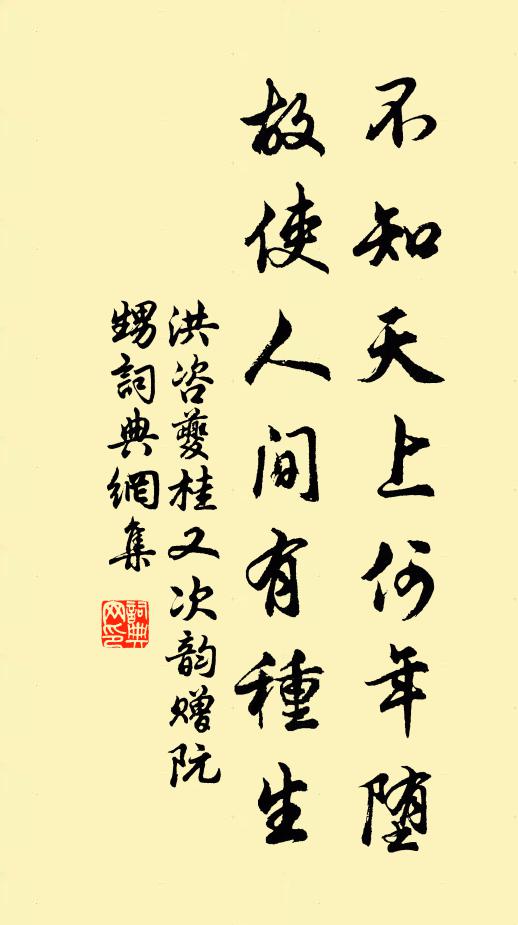 不知天上何年堕
故使人间有種生
洪咨夔桂又次韵赠阮
甥詞典網集
詞典
网印